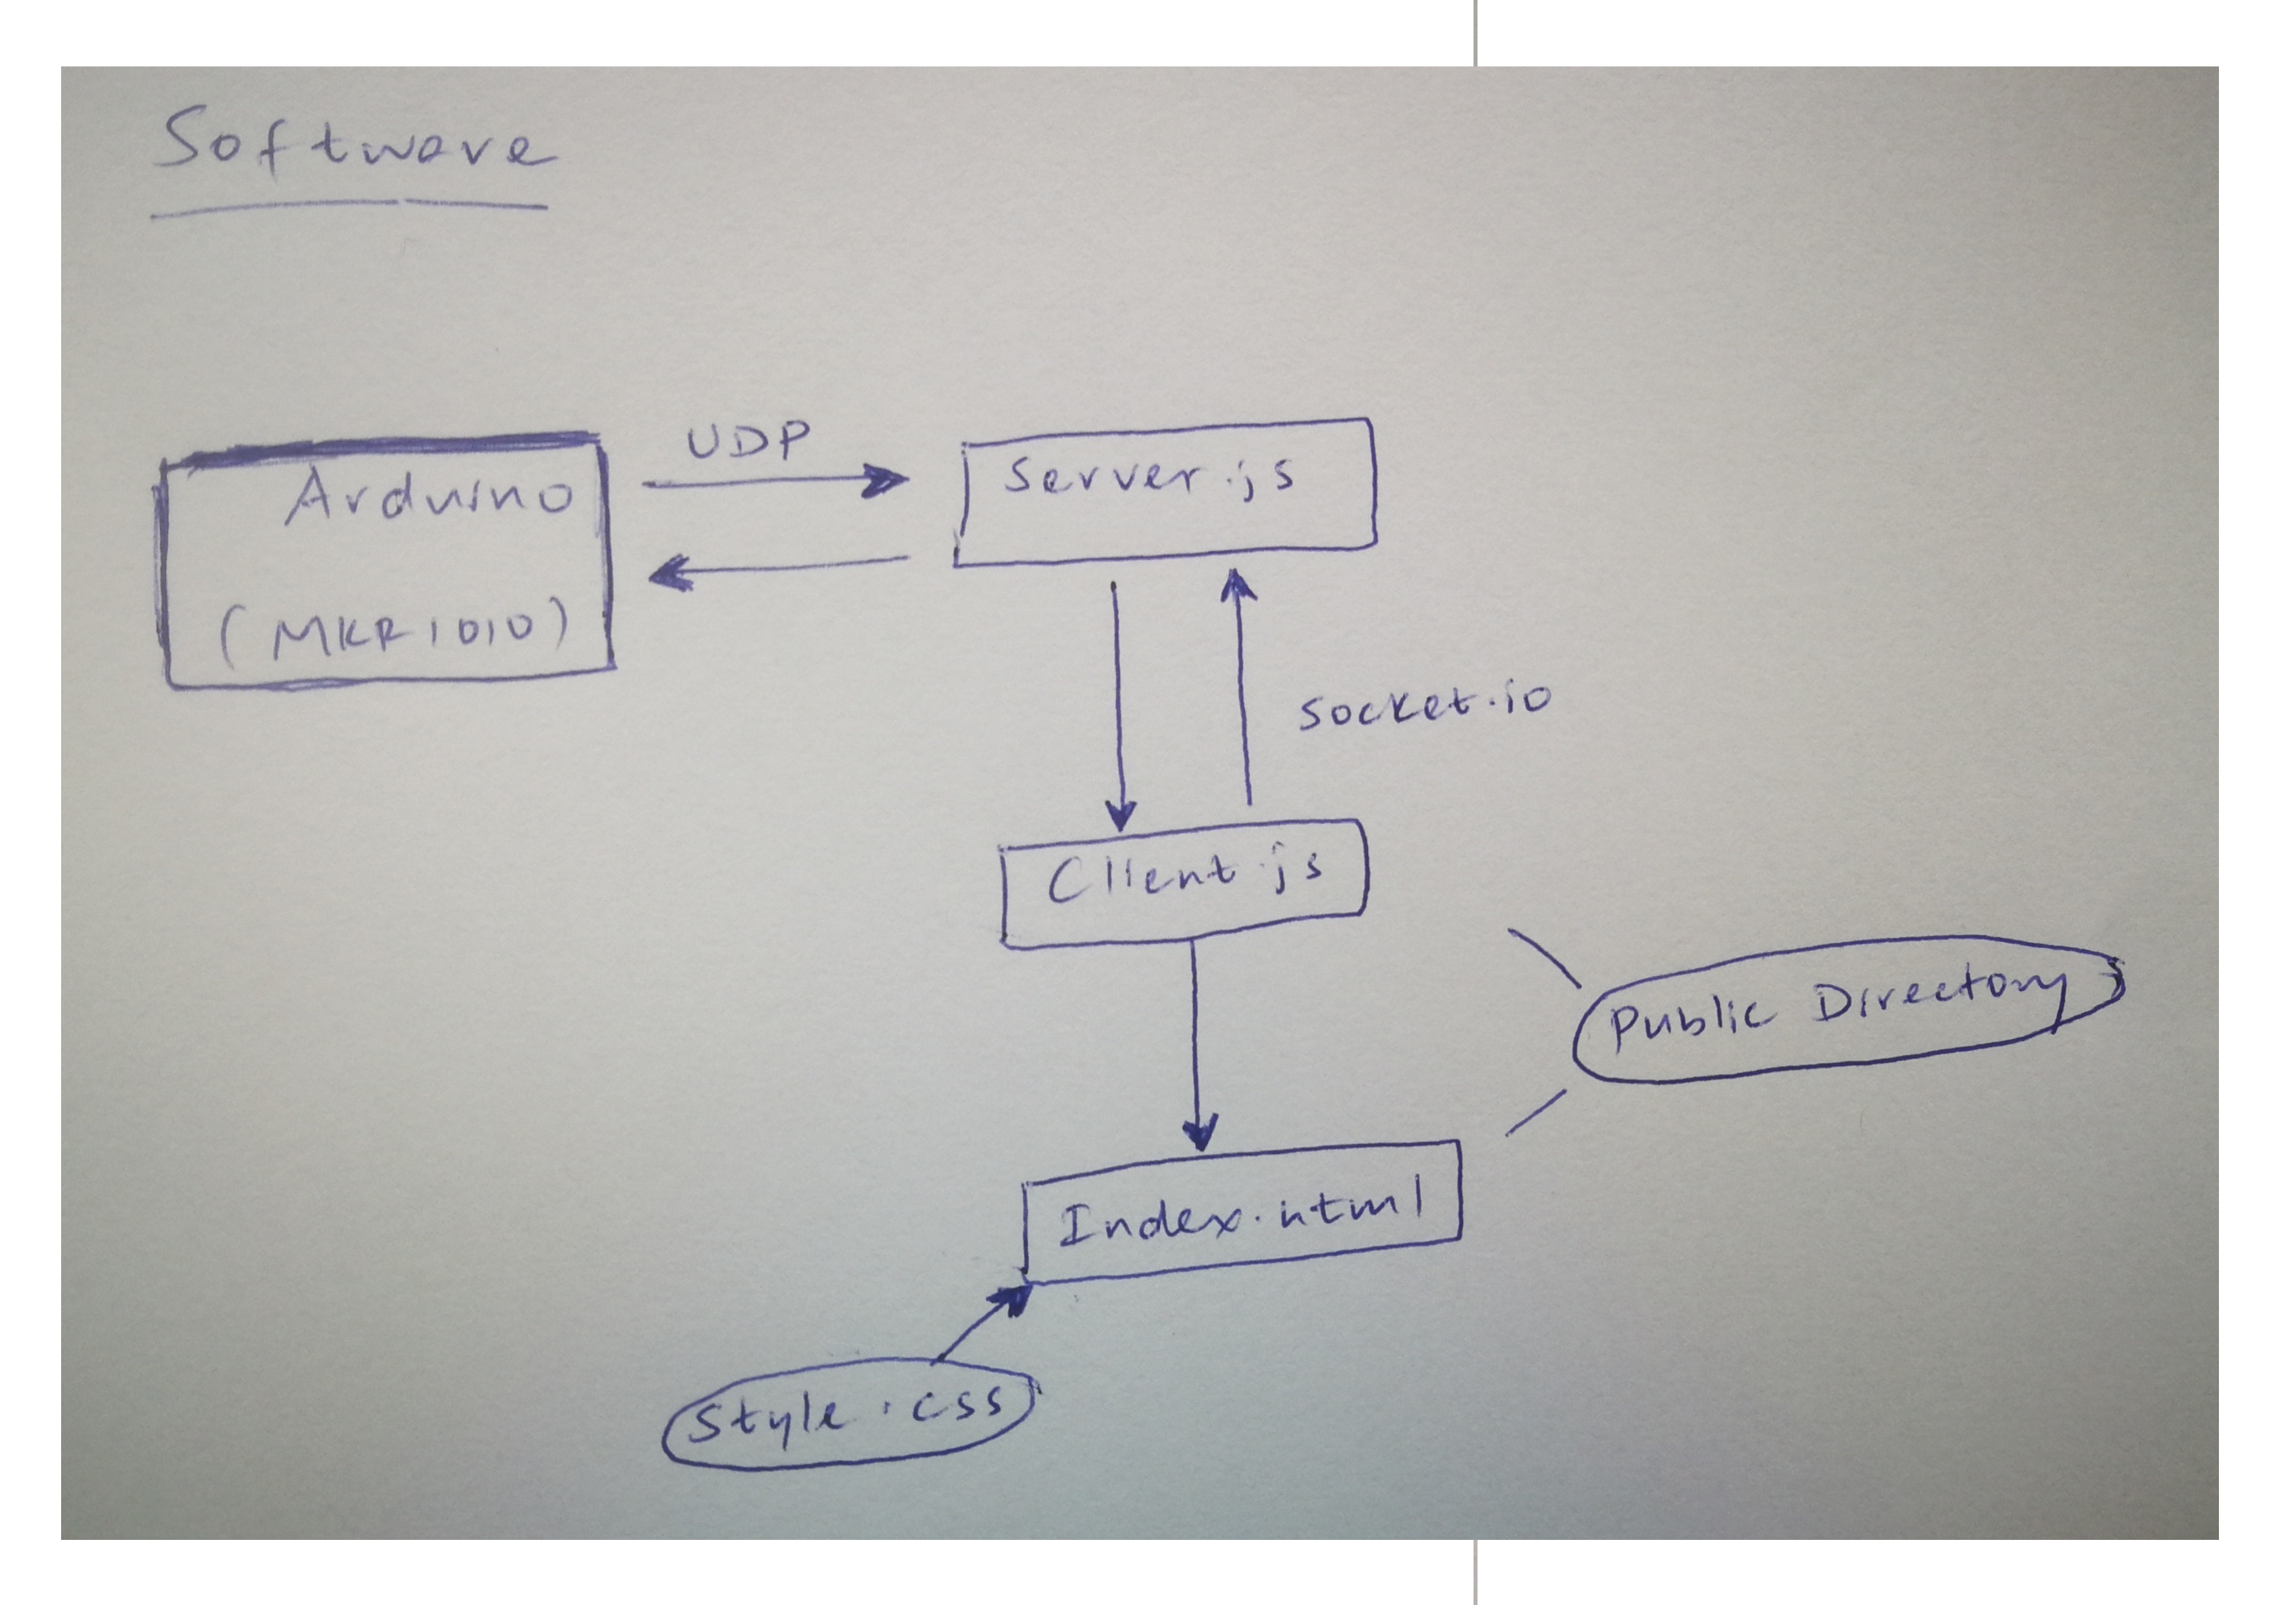 Software
UDP
Arduino
(MKR1010)
Server.js
socket.io
Client.js
Public Directory
Index.html
Style.css